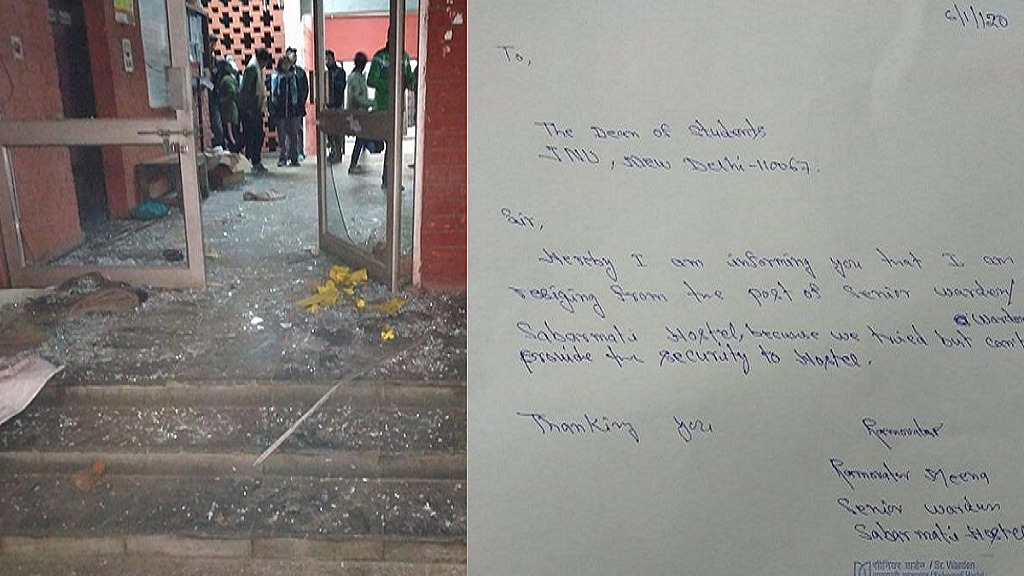 6/1/20
To,
The Dean of Students
JNU, New Delhi-110067.
Sir,
Hereby I am informing you that I am
resiging from the post of Senior Warden/
Warden
Sabarmati Hostel, because we tried but cant
provide the security to Hostel.
Thanking you
Ramavatar Meena
Senior Warden
Sabarmati Hostel
सीनियर वार्डन / Sr. Warden